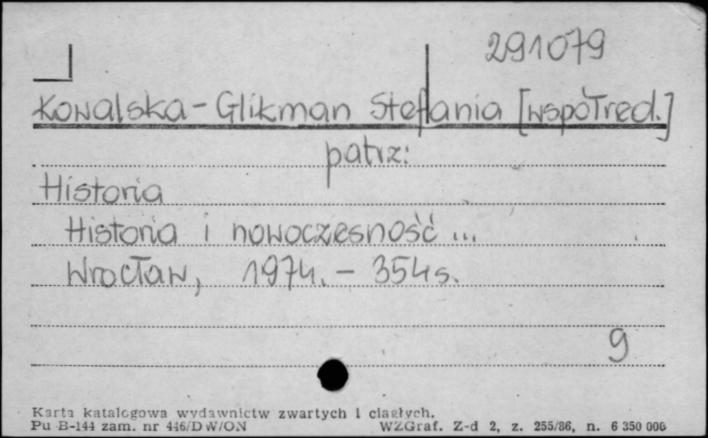 291079
Kowalska-Glikman Stefania [współred.]
patrz:
Historia
Historia i nowoczesność ...
Wrocław, 1974. - 354 s.
9
Karta katalogowa wydawnictw zwartych i ciągłych.
Pu B-144 zam. nr 446/DW/ON WZGraf. Z-d 2, z. 255/86, n. 6 350 000